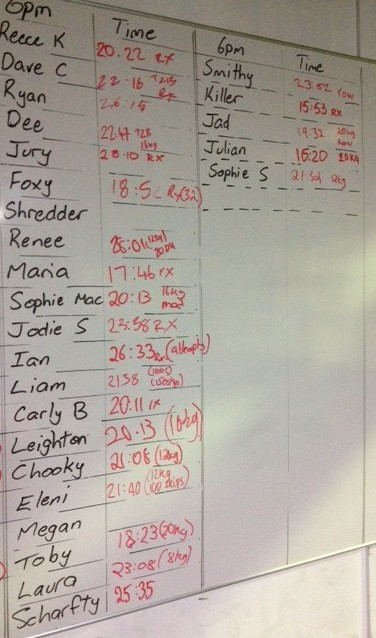 6pm Time
Reece K 20.22 RX
Dave C 22:16
Ryan 26:15
Dee 16kg
Jury 28:10 RX
Foxy Rx(32)
Shredder
Renee
Maria 17:46 rx
Sophie Mac 20:13 16kg
Jodie S 23:58 RX
Ian 26:33 Rx (attempts)
Liam 21:58
Carly B 20:11 rx
Leighton 20.13 (16kg)
Chooky 21:08 (12kg)
Eleni 21:40 (12kg
100 skips)
Megan
Toby 18:23 (20kg)
Laura 23:08 (8kg)
Scharfty 25:35
6pm Time
Smithy 23:52 row
Killer 15:53 RX
Jad 19:32 20kg
row
Julian 16:20 20KG
Sophie S 21:52